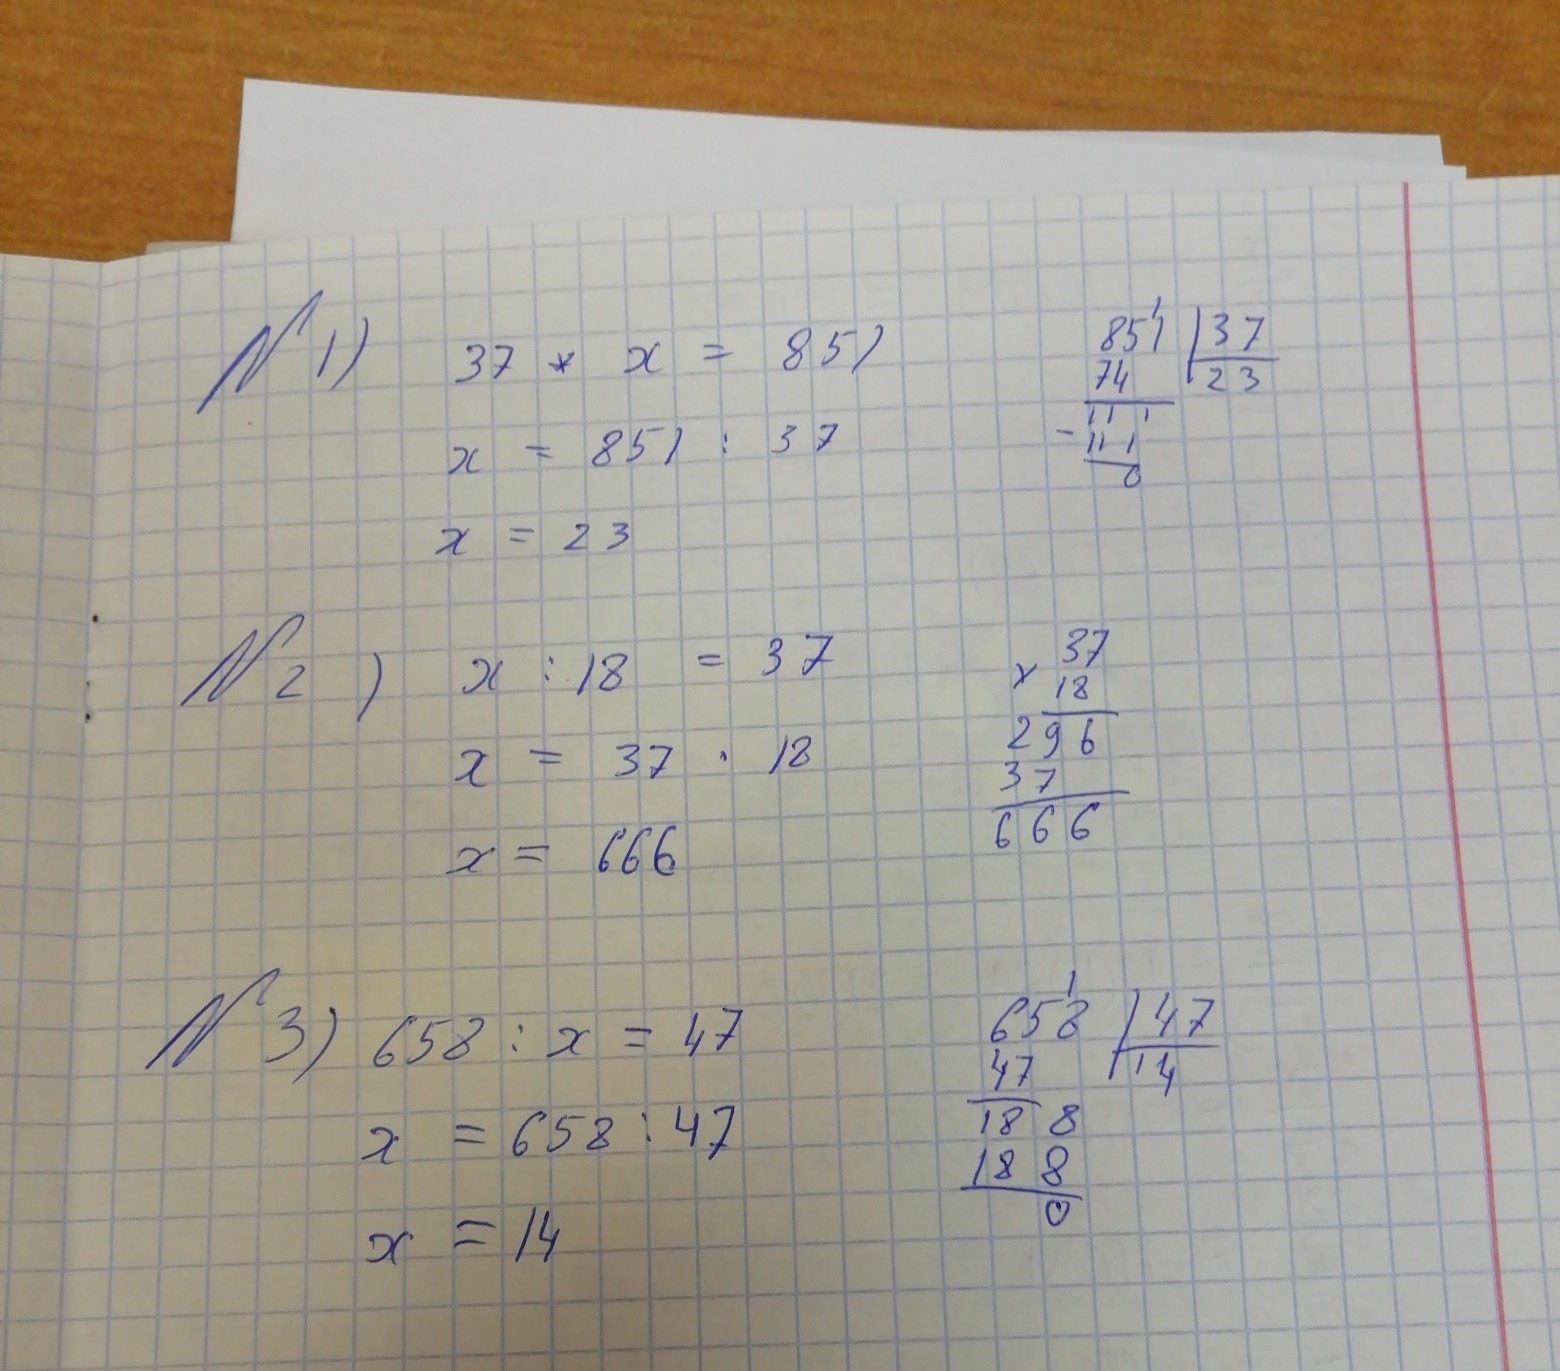 N 1) 37 * x = 851
x = 851 : 37
x = 23
1
851 37
74 23
111
- 111
0
N 2) x : 18 = 37
x = 37 · 18
x = 666
37
× 18
296
37
666
N 3) 658 : x = 47
x = 658 : 47
x = 14
1
658 47
47 14
188
188
0